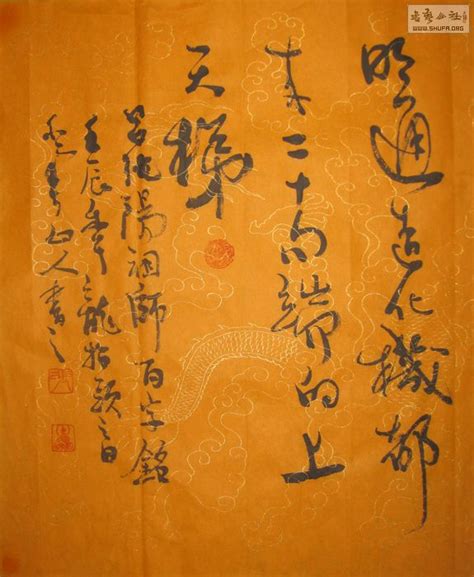 明通造化機都
来二十句端的上
天梯
吕純陽祖師百字銘
壬辰年之龍抬頭之日
山人書之
書藝公社
WWW.SHUFA.ORG